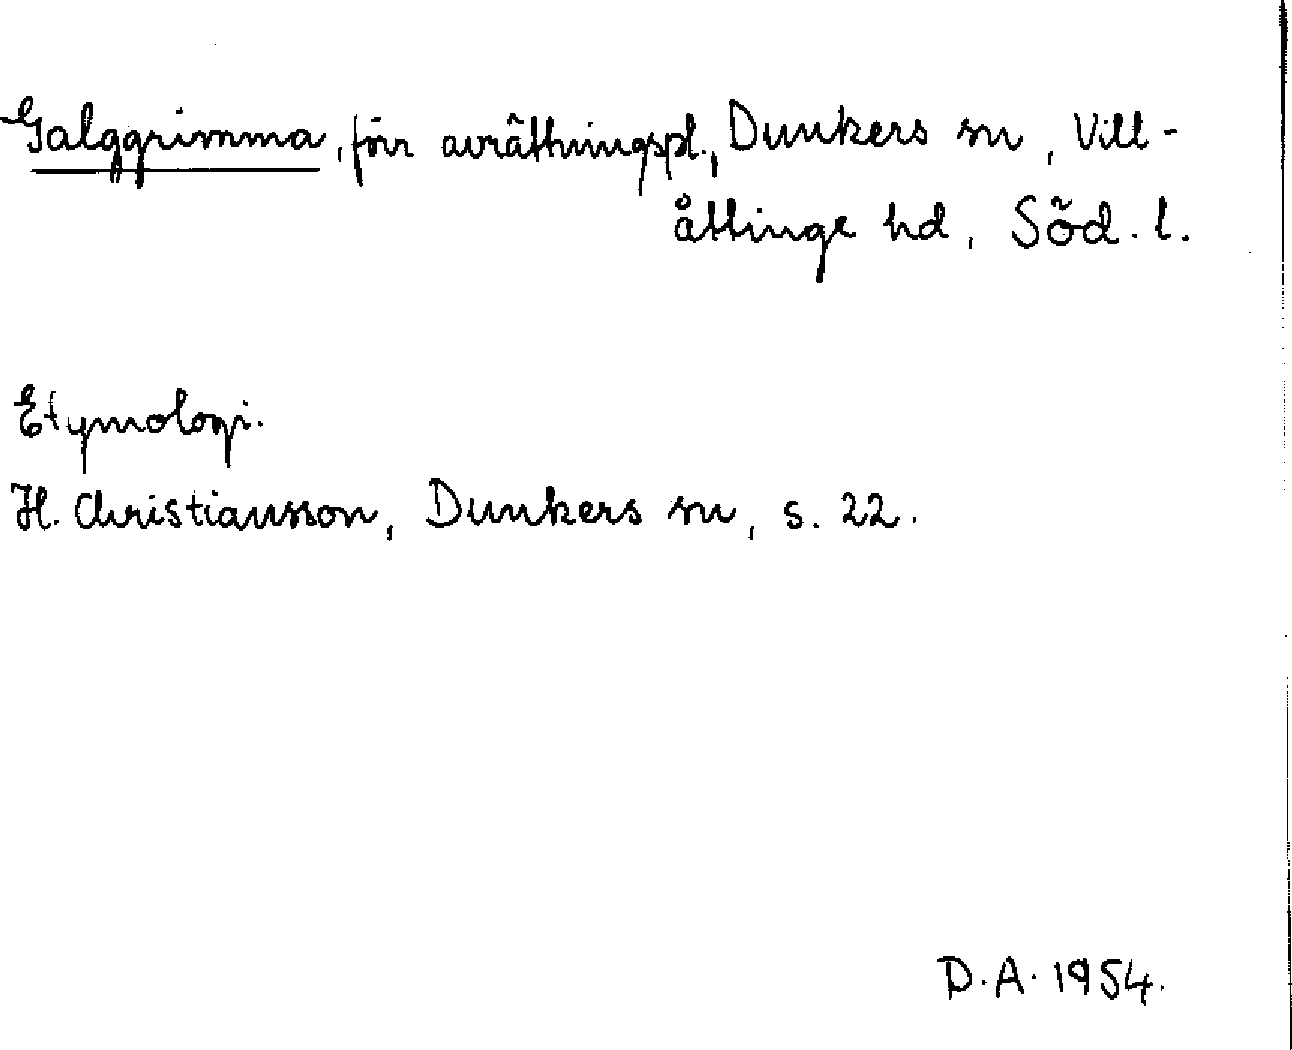 Galggrimma, förr avrättningspl., Dunkers sn, Vill-
åttinge hd, Söd. l.
Etymologi.
H. Christiansson, Dunkers sn, s. 22.
D.A. 1954.